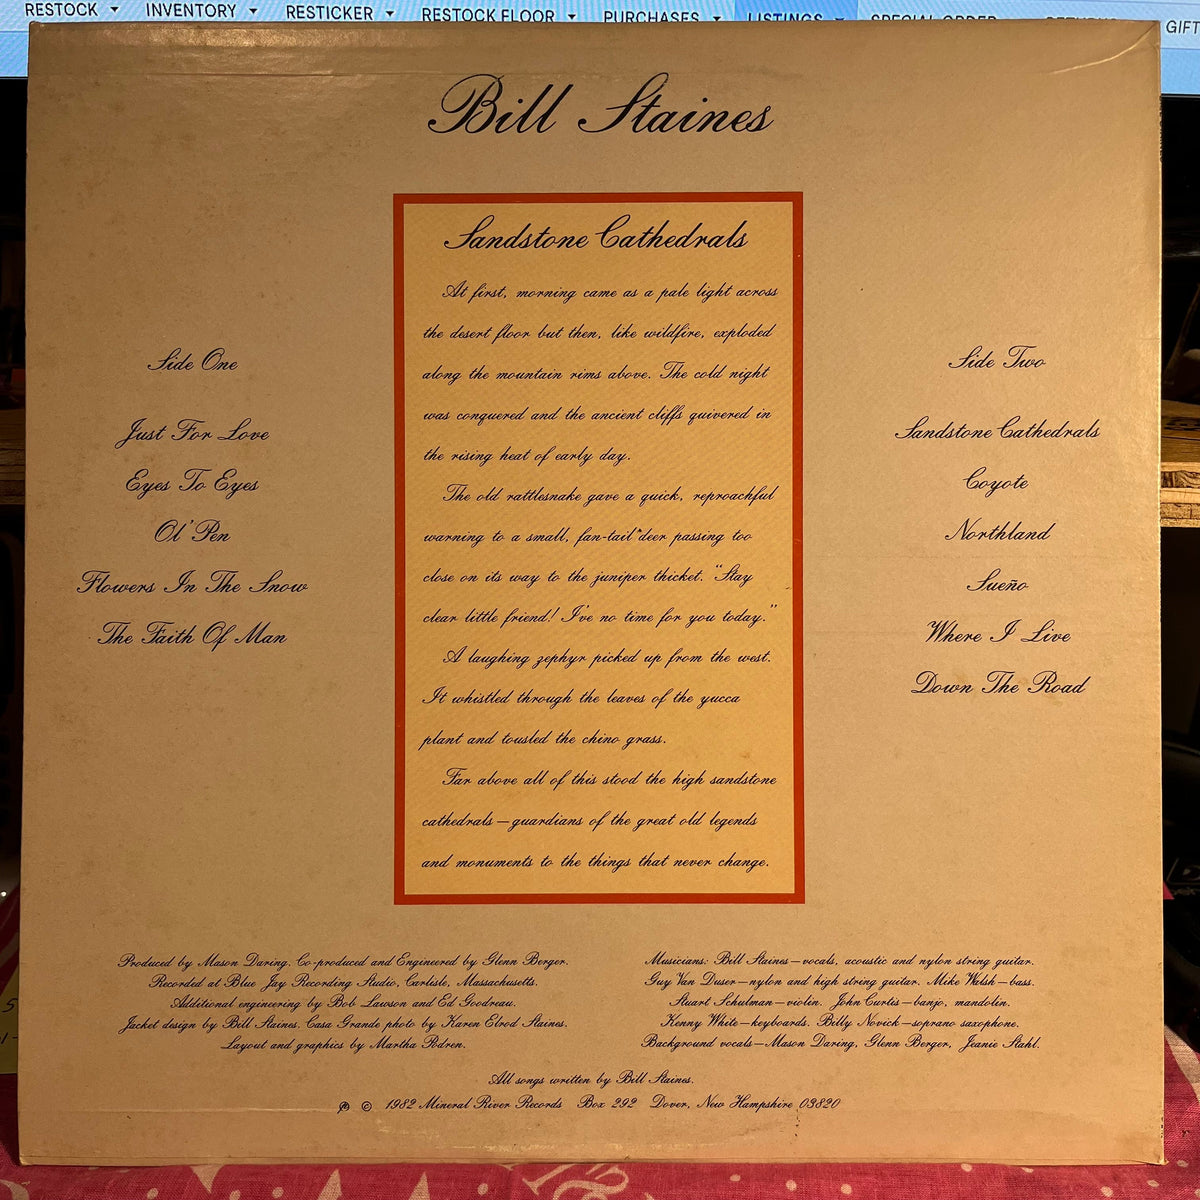 RESTOCK INVENTORY RESTICKER RESTOCK FLOOR PURCHASES LISTINGS SPECIAL ORDER GIFT
Bill Staines
Sandstone Cathedrals
At first, morning came as a pale light across
the desert floor but then, like wildfire, exploded
along the mountain rims above. The cold night
was conquered and the ancient cliffs quivered in
the rising heat of early day.
The old rattlesnake gave a quick, reproachful
warning to a small, fan-tail deer passing too
close on its way to the juniper thicket. "Stay
clear little friend! I've no time for you today."
A laughing zephyr picked up from the west.
It whistled through the leaves of the yucca
plant and tousled the chino grass.
Far above all of this stood the high sandstone
cathedrals—guardians of the great old legends
and monuments to the things that never change.
Side One
Just For Love
Eyes To Eyes
Ol' Pen
Flowers In The Snow
The Faith Of Man
Side Two
Sandstone Cathedrals
Coyote
Northland
Sueño
Where I Live
Down The Road
Produced by Mason Daring. Co-produced and Engineered by Glenn Berger.
Recorded at Blue Jay Recording Studio, Carlisle, Massachusetts.
Additional engineering by Bob Lawson and Ed Goodreau.
Jacket design by Bill Staines. Casa Grande photo by Karen Elrod Staines.
Layout and graphics by Martha Podren.
Musicians: Bill Staines—vocals, acoustic and nylon string guitar.
Guy Van Duser—nylon and high string guitar. Mike Walsh—bass.
Stuart Schulman—violin. John Curtis—banjo, mandolin.
Kenny White—keyboards. Billy Novick—soprano saxophone.
Background vocals—Mason Daring, Glenn Berger, Jeanie Stahl.
All songs written by Bill Staines.
℗ © 1982 Mineral River Records Box 292 Dover, New Hampshire 03820